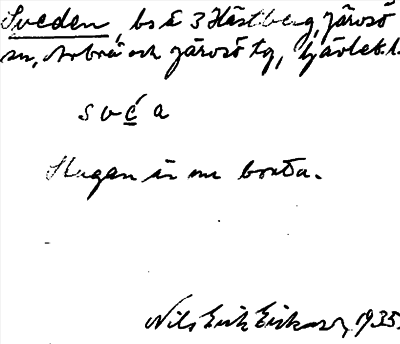 Sveden, bs å 3 Hästberg, Järvsö
sn, Arbrå och Järvsö tg, Gävleb.l.
s v é a
Stugan är nu borta.
Nils Erik Eriksson, 1935.